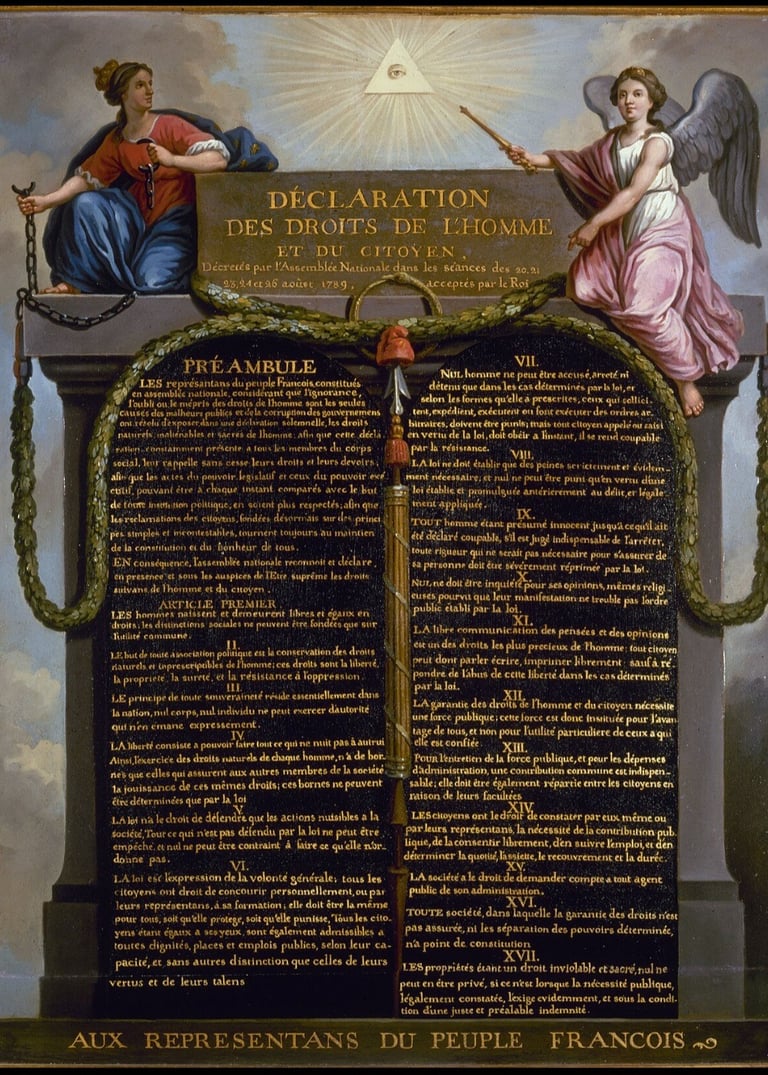 DÉCLARATION
DES DROITS DE L'HOMME
ET DU CITOYEN,
Décretés par l'Assemblée Nationale dans les séances des 20, 21
23, 24 et 26 août 1789, acceptés par le Roi
PRÉAMBULE
LES représantans du peuple Francois, constitués
en assemblée nationale, considérant que l'ignorance,
l'oubli ou le mépris des droits de l'homme sont les seules
causes des malheurs publics et de la corruption des gouvernemens
ont résolu d'exposer, dans une déclaration solemnelle, les droits
naturels, inaliénables et sacrés de l'homme; afin que cette décla
ration, constamment présente a tous les membres du corps
social, leur rappelle sans cesse leurs droits et leurs devoirs;
afin que les actes du pouvoir législatif et ceux du pouvoir exé
cutif, pouvant être à chaque instant comparés avec le but
de toute institution politique, en soient plus respectés; afin que
les reclamations des citoyens, fondées désormais sur des princi
pes simples et incontestables, tournent toujours au maintien
de la constitution et du bonheur de tous.
EN conséquence, l'assemblée nationale reconnoit et déclare
en presence et sous les auspices de l'Etre suprême les droits
suivans, de l'homme et du citoyen.
ARTICLE PREMIER
LES hommes naissent et demeurent libres et égaux en
droits; les distinctions sociales ne peuvent être fondées que sur
l'utilité commune.
II.
LE but de toute association politique est la conservation des droits
naturels et inprescriptibles de l'homme; ces droits sont la liberté,
la propriété, la sureté, et la résistance à l'oppression.
III.
LE principe de toute souveraineté réside essentiellement dans
la nation, nul corps, nul individu ne peut exercer d'autorité
qui n'en émane expressement.
IV.
LA liberté consiste a pouvoir faire tout ce qui ne nuit pas à autrui
Ainsi, l'exercice des droits naturels de chaque homme, n'a de bor
nes que celles qui assurent aux autres membres de la société
la jouissance de ces mêmes droits; ces bornes ne peuvent
être déterminées que par la loi
V.
LA loi n'a le droit de défendre que les actions nuisibles a la
société. Tout ce qui n'est pas défendu par la loi ne peut être
empêché, et nul ne peut être contraint à faire ce qu'elle n'or-
donne pas.
VI.
LA loi est l'expression de la volonté générale; tous les
citoyens ont droit de concourir personnellement, ou par
leurs représentans, à sa formation; elle doit être la même
pour tous, soit qu'elle protege, soit qu'elle punisse. Tous les cito-
yens étant égaux a ses yeux, sont également admissibles a
toutes dignités, places et emplois publics, selon leur ca-
pacité, et sans autres distinction que celles de leurs
vertus et de leurs talens
VII.
NUL homme ne peut être accusé, arreté ni
détenu que dans les cas déterminés par la loi, et
selon les formes qu'elle à prescrites, ceux qui sollici-
tent, expédient, exécutent ou font exécuter des ordres ar-
bitraires, doivent être punis; mais tout citoyen appelé ou saisi
en vertu de la loi, doit obéir a l'instant, il se rend coupable
par la résistance.
VIII.
LA loi ne doit établir que des peines strictement et évidem-
ment nécessaire, et nul ne peut être puni qu'en vertu d'une
loi établie et promulguée antérierement au délit, et légale-
ment appliquée.
IX.
TOUT homme étant présumé innocent jusqu'a ce qu'il ait
été déclaré coupable, s'il est jugé indispensable de l'arrêter,
toute rigueur qui ne serait pas nécessaire pour s'assurer de
sa personne doit être sévèrement réprimée par la loi.
X.
NUL ne doit être inquiété pour ses opinions, mêmes religi
euses pourvu que leur manifestation ne trouble pas l'ordre
public établi par la loi.
XI.
LA libre communication des pensées et des opinions
est un des droits les plus precieux de l'homme; tout citoyen
peut dont parler écrire, imprimer librement; sauf à ré-
pondre de l'abus de cette liberté dans les cas déterminés
par la loi.
XII.
LA garantie des droits de l'homme et du citoyen nécessite
une force publique; cette force est donc instituée pour l'avan
tage de tous, et non pour l'utilité particuliere de ceux a qui
elle est confiée.
XIII.
POUR l'entretien de la force publique, et pour les dépenses
d'administration, une contribution commune est indispen-
sable; elle doit être également répartie entre les citoyens en
raison de leurs facultées.
XIV.
LES citoyens ont le droit de constater par eux même ou
par leurs représentans, la nécessité de la contribution pub-
lique, de la consentir librement, d'en suivre l'emploi, et d'en
déterminer la quotité, l'assiette, le recouvrement et la durée.
XV.
LA société a le droit de demander compte a tout agent
public de son administration.
XVI.
TOUTE société, dans laquelle la garantie des droits n'est
pas assurée, ni les séparation des pouvoirs déterminée,
n'a point de constitution
XVII.
LES propriétés étant un droit inviolable et sacré, nul ne
peut en être privé, si ce n'est lorsque la nécessité publique,
légalement constatée, l'exige evidemment, et sous la condi-
tion d'une juste et préalable indemnité.
AUX REPRESENTANS DU PEUPLE FRANCOIS